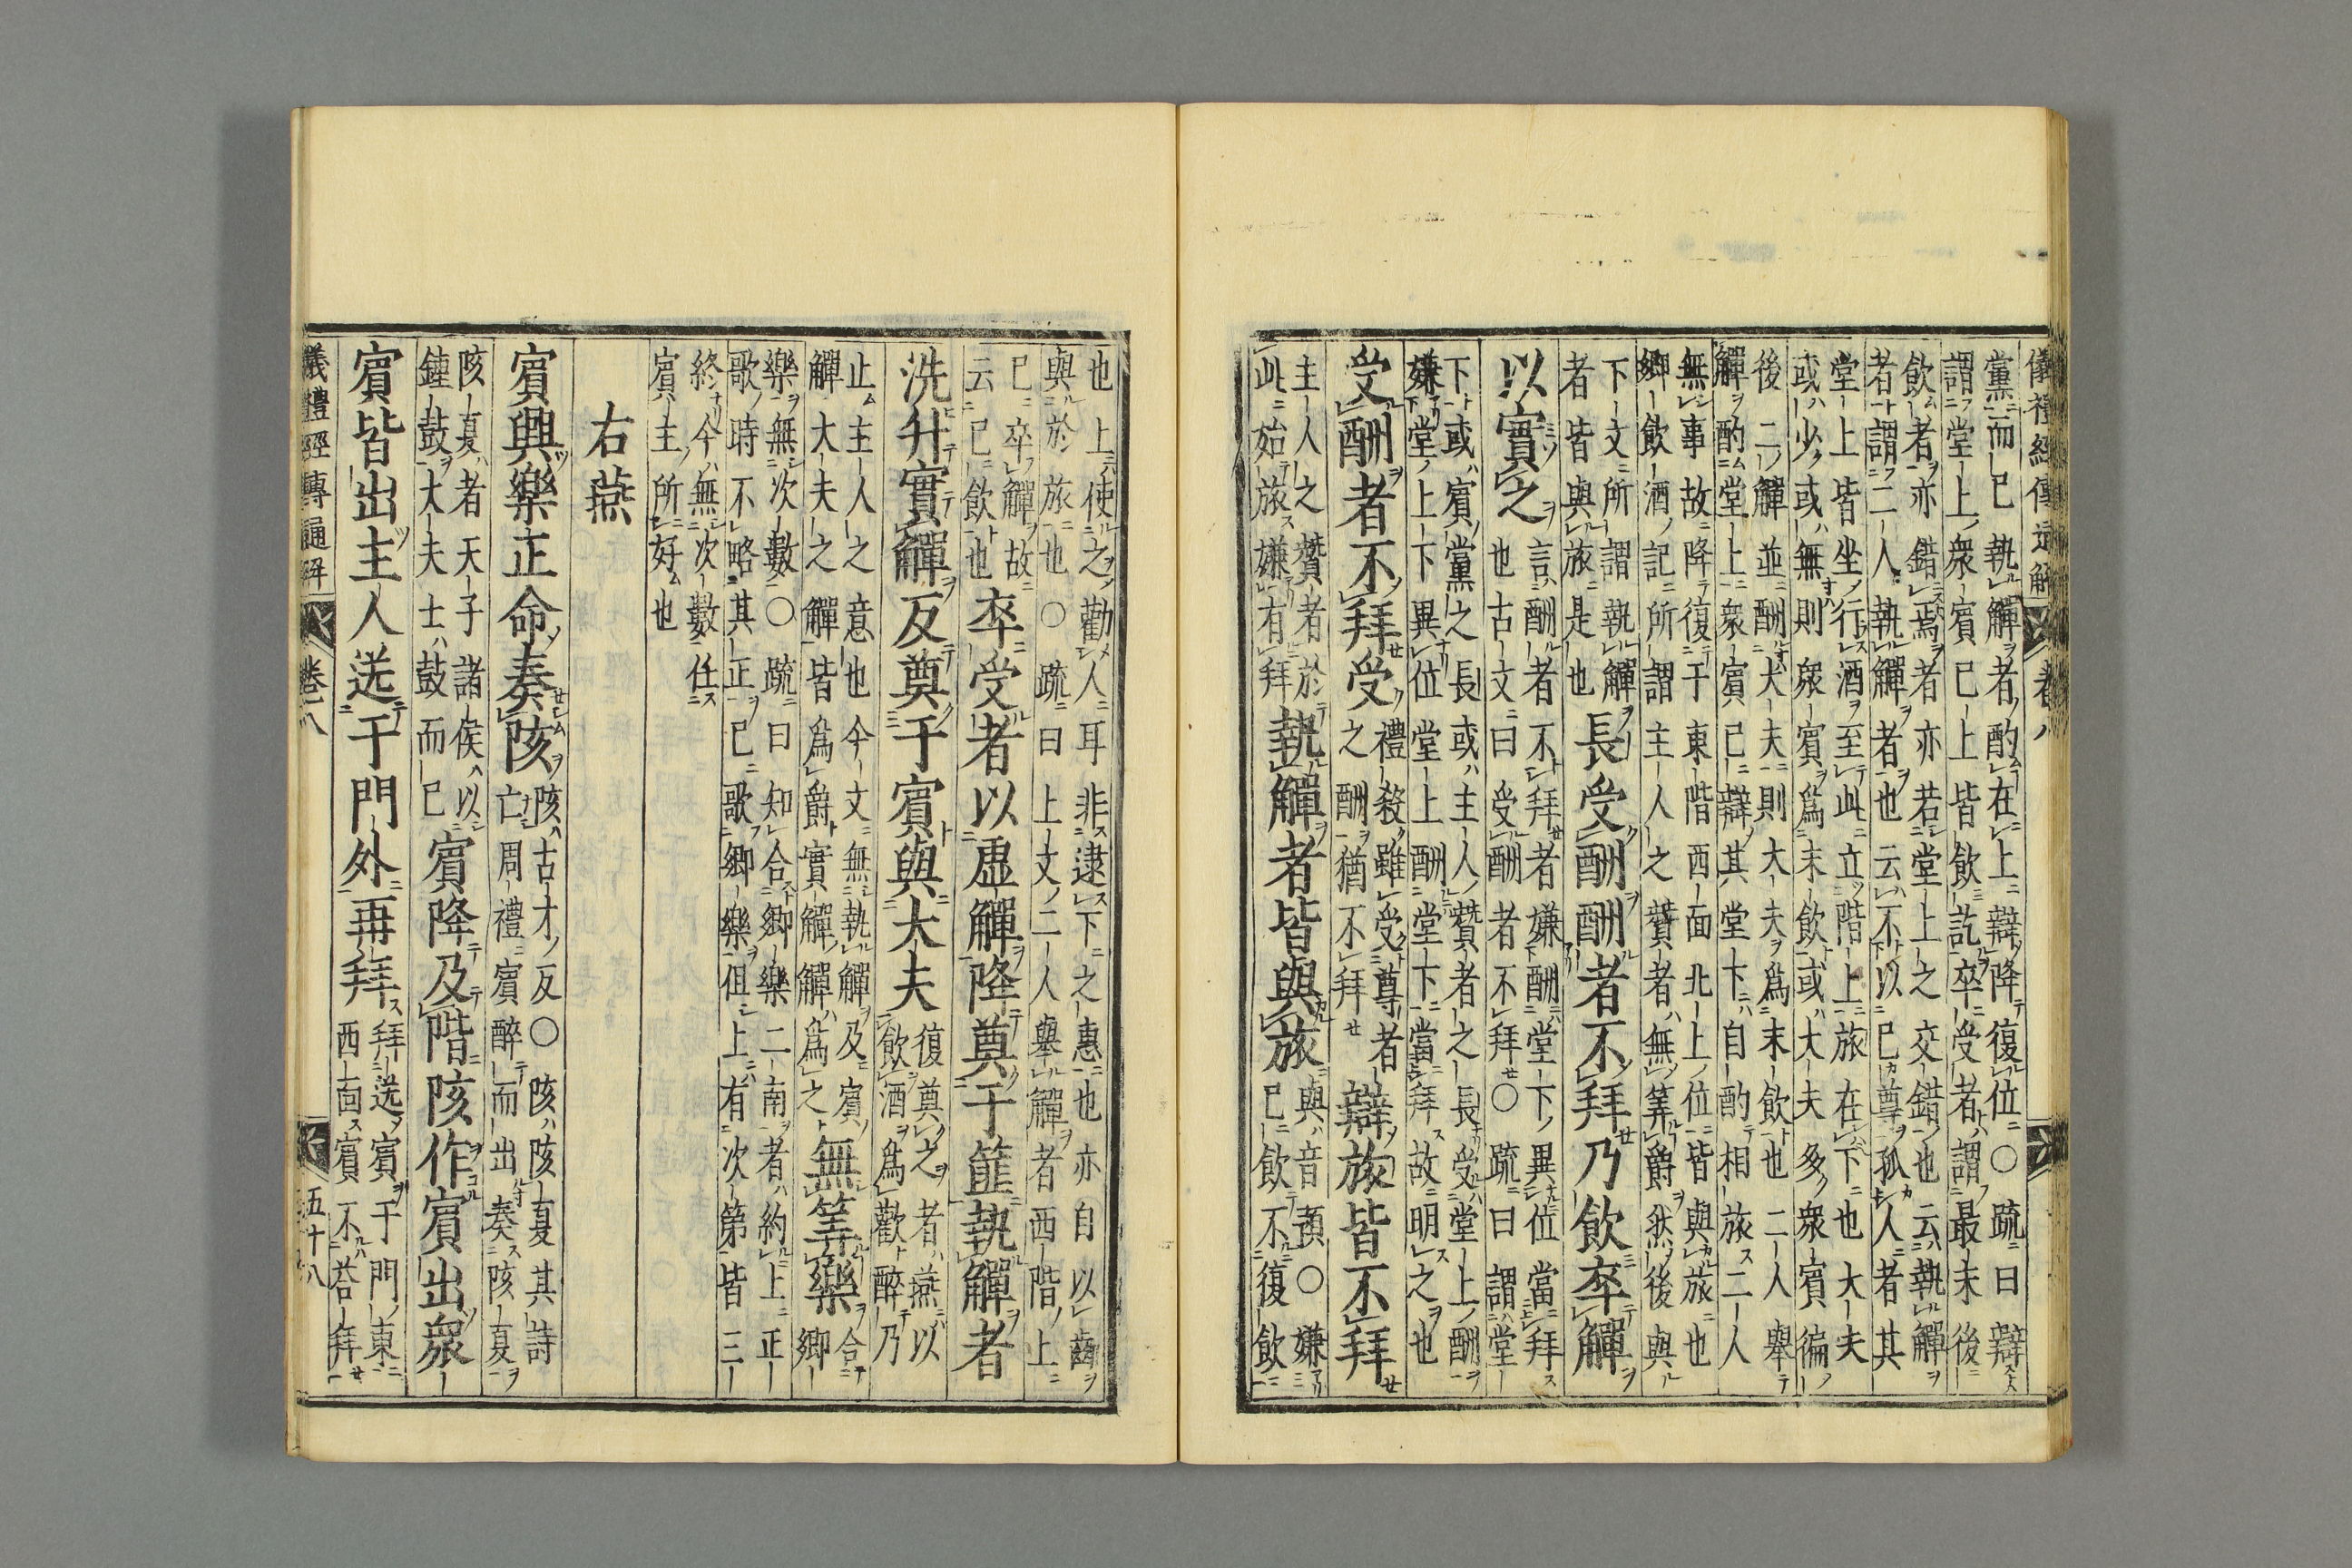 儀禮經傳通解 卷八
黨而已執觶者酌在上辯降復位○疏曰辯
謂堂上衆賓已上皆飲訖卒受者謂最末後
飲者亦錯焉者亦若堂上之交錯也云執觶
者謂二人執觶者也云不以已尊孤人者其
堂上皆坐行酒至此立階上旅在下也大夫
或少或無則衆賓爲末飲或大夫多衆賓徧
後二觶並酬大夫則大夫爲末飲也二人舉
觶酌堂上衆賓已辯其堂下自酌相旅二人
無事故降復于東階西面北上位皆與旅也
鄉飲酒記所謂主人之贊者無筭爵然後與
下文所謂執觶
者皆與旅是也
長受酬酬者不拜乃飲卒觶
以實之
言酬者不拜者嫌酬堂下異位當拜
也古文曰受酬者不拜○疏曰謂堂
下或賓黨之長或主人贊者之長受堂上酬
嫌堂上下異位堂上酬堂下當拜故明之也
受酬者不拜受
禮殺雖受尊者
之酬猶不拜
辯旅皆不拜
主人之贊者於
此始旅嫌有拜
執觶者皆與旅
與音預○嫌
已飲不復飲
也上使之勸人耳非逮下之惠也亦自以齒
與於旅也○疏曰上文二人舉觶者西階上
已卒觶故
云已飲也
卒受者以虛觶降奠于篚執觶者
洗升實觶反奠于賓與大夫
復奠之者燕以
飲酒爲歡醉乃
止主人之意也今文無執觶及賓
觶大夫之觶皆爲爵實觶觶爲之
無筭樂
合鄉
樂無次數○疏曰知合鄉樂二南者約上正
歌時不略其正已歌鄉樂但上有次第皆三
終今無次數任
賓主所好也
右燕
賓興樂正命奏陔
陔古才反○陔陔夏其詩
亡周禮賓醉而出奏陔夏
陔夏者天子諸侯以
鍾鼓大夫士鼓而已
賓降及階陔作賓出衆
賓皆出主人送于門外再拜
拜送賓于門東
西面賓不荅拜
儀禮經傳通解 卷八 五十八